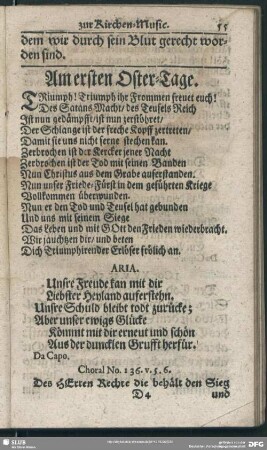 zur Kirchen-Music. 55
dem wir durch sein Blut gerecht wor-
den sind.
Am ersten Oster-Tage.
TRiumph! Triumph ihr Frommen freuet euch!
Des Satans Macht/ des Teufels Reich
Ist nun gedämpfft/ ist nun zerstöhret/
Der Schlange ist der freche Kopff zertretten/
Damit sie uns nicht ferne stechen kan.
Zerbrochen ist der Kercker jener Nacht
Zerbrochen ist der Tod mit seinen Banden
Nun Christus aus dem Grabe auferstanden.
Nun unser Friede-Fürst in dem geführten Kriege
Vollkommen überwunden.
Nun er den Tod und Teufel hat gebunden
Und uns mit seinem Siege
Das Leben und mit GOtt den Frieden wiederbracht.
Wir jauchtzen dir/ und beten
Dich Triumphirender Erlöser frölich an.
ARIA.
Unsre Freude kan mit dir
Liebster Heyland auferstehn.
Unsre Schuld bleibt todt zurücke;
Aber unser ewigs Glücke
Kömmt mit dir erneut und schön
Aus der duncklen Grufft herfür.
Da Capo.
Choral No. 136. v. 5. 6.
Des HErren Rechte die behält den Sieg
D4 und